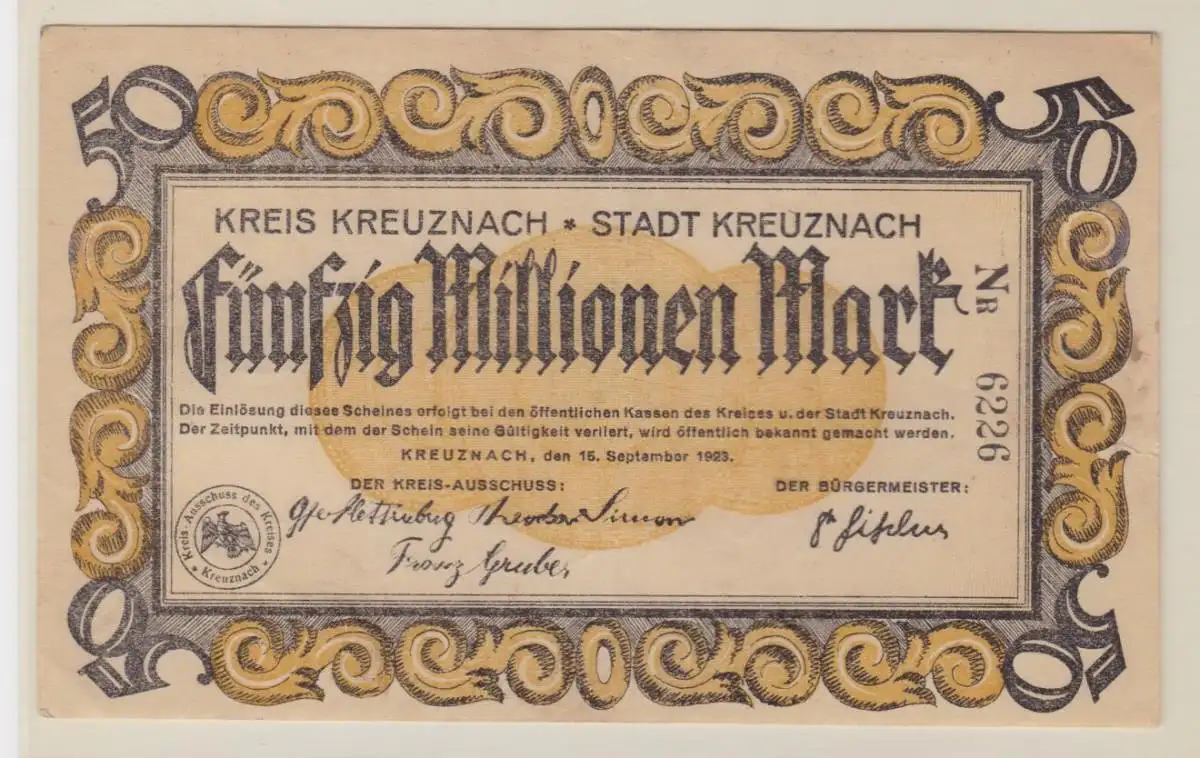 50
50
KREIS KREUZNACH * STADT KREUZNACH
Fünfzig Millionen Mark
NR 6226
Die Einlösung dieses Scheines erfolgt bei den öffentlichen Kassen des Kreises u. der Stadt Kreuznach.
Der Zeitpunkt, mit dem der Schein seine Gültigkeit verliert, wird öffentlich bekannt gemacht werden.
KREUZNACH, den 15. September 1923.
DER KREIS-AUSSCHUSS:
DER BÜRGERMEISTER:
Kreis-Ausschuss des Kreises
* Kreuznach *
Theodor Simon
Franz Gruber
50
50